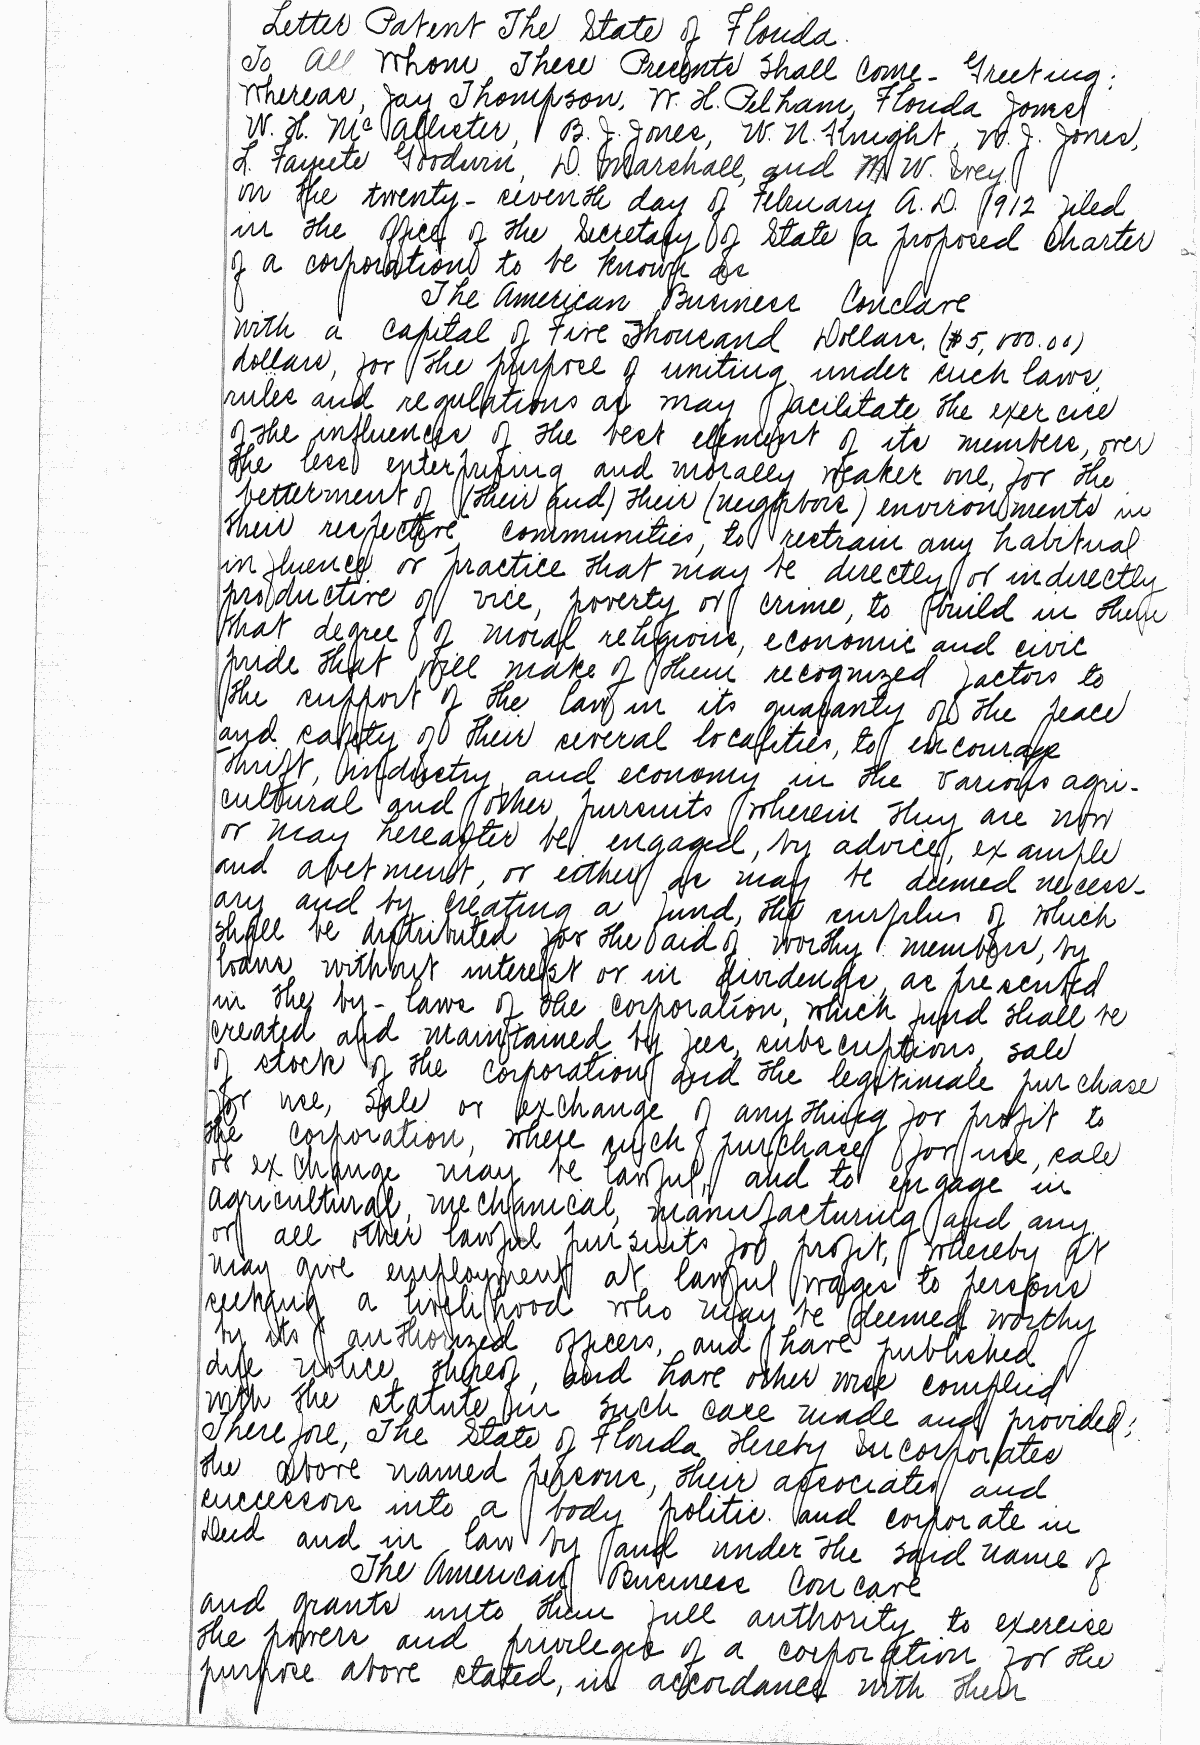 Letter Patent The State of Florida.
To All Whom These Presents Shall Come - Greeting:
Whereas, Jay Thompson, W. H. Pelham, Florida Jones,
W. H. McAllister, B. J. Jones, W. N. Knight, W. J. Jones,
L. Fayete Goodwin, D. Marshall, and M W. Ivey
on the twenty-seventh day of February A.D. 1912 filed
in the office of the Secretary of State a proposed charter
of a corporation to be known as
The American Business Conclave
with a capital of Five Thousand Dollars, ($5,000.00)
dollars, for the purpose of uniting under such laws,
rules and regulations as may facilitate the exercise
of the influences of the best element of its members, over
the less enterprising and morally weaker one, for the
betterment of (their and) their (neighbors) environments in
their respective communities, to restrain any habitual
influence or practice that may be directly or indirectly
productive of vice, poverty or crime, to build in them
that degree of moral religious, economic and civic
pride that will make of them recognized factors to
the support of the law in its guaranty of the peace
and safety of their several localities, to encourage
thrift, industry and economy in the various agri-
cultural and other pursuits wherein they are now
or may hereafter be engaged, by advice, example
and abetment, or either as may be deemed necess-
ary and by creating a fund, the surplus of which
shall be distributed for the aid of worthy members, by
loans without interest or in dividends, as presented
in the by-laws of the corporation, which fund shall be
created and maintained by fees, subscriptions, sale
of stock of the corporation and the legitimate purchase
for use, sale or exchange of any thing for profit to
the corporation, where such purchase for use, sale
or exchange may be lawful, and to engage in
agricultural, mechanical, manufacturing and any
or all other lawful pursuits for profit, whereby at
may give employment at lawful wages to persons
seeking a livelihood who may be deemed worthy
by its authorized officers, and have published
due notice thereof, and have other wise complied
with the statute in such case made and provided;
Therefore, The State of Florida Hereby Incorporates
the above named persons, their associates and
successors into a body politic and corporate in
Deed and in law by and under the said name of
The American Business Concave
and grants unto them full authority to exercise
the powers and privileges of a corporation for the
purpose above stated, in accordance with their